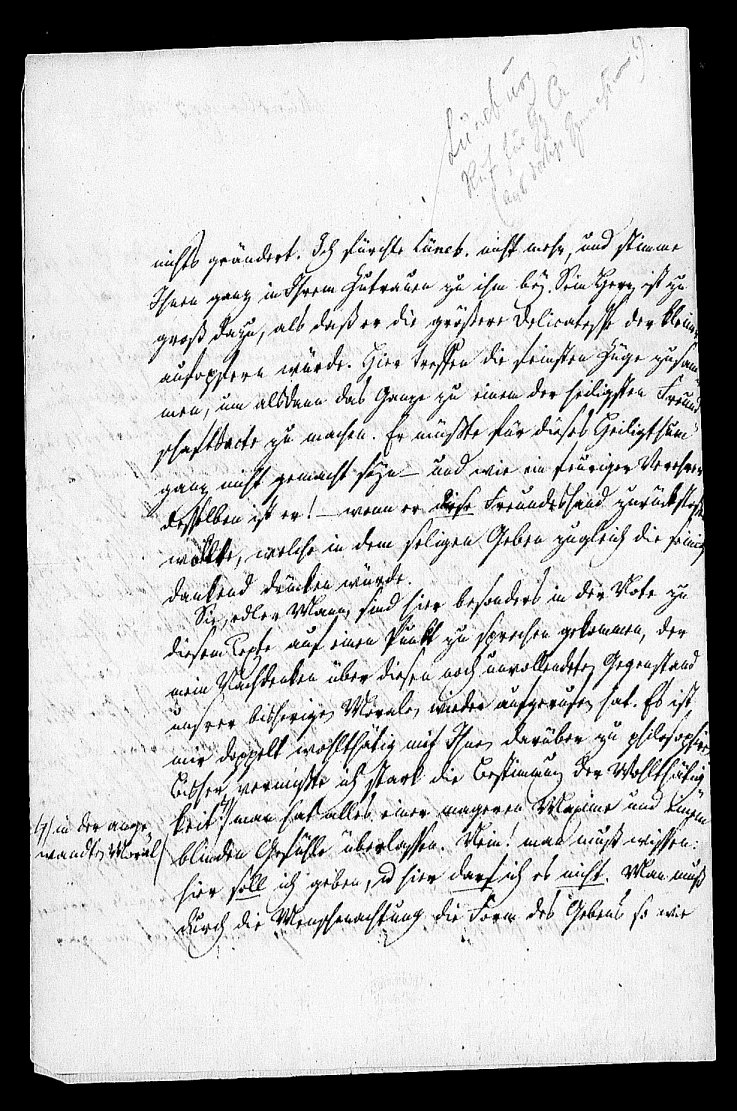 nichts geändert. Ich fürchte Lüneb. nicht mehr, und stimme
Ihnen ganz in Ihrem Zutrauen zu ihm bey. Sein Herz ist zu
groß dazu, als daß er die größere Delicatesse der kleinen
aufopfern würde. Hier treffen die feinsten Züge zusam-
men, um alsdann das Ganze zu einem der heiligsten Freund-
schaftsacte zu machen. Er müßte für dieses Heiligthum
ganz nicht gemacht seyn – und wie ein feuriger Verehrer
desselben ist er! – wenn er diese Freundeshand zurückstoßen
wollte, welche in dem seligen Geben zugleich die seinige
dankend drücken würde.
Sie, edler Mann, sind hier besonders in der Note zu
diesem Texte auf einen Punkt zu sprechen gekommen, der
mein Nachdenken über diesen noch unvollendeten Gegenstand
unsrer bisherigen Moralen wieder aufgerufen hat. Es ist
mir doppelt wohlthätig mit Ihnen darüber zu philosophiren.
Bisher vermißte ich stark die Bestimmung der Wohlthätig-
keit; man hat alles einer mageren Maxime und einem
in der ange-
wandten Moral
blinden Gefühle überlassen. Nein! man muß wissen:
hier soll ich geben, u hier darf ich es nicht. Man muß
durch die Menschenachtung die Form des Gebens so wie